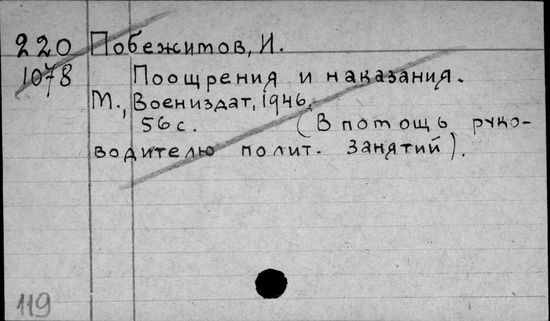 220 Побежитов, И.
1078 Поощрения и наказания.
М., Воениздат, 1946.
56 с. (В потощь руко-
водителю полит. занятий).
119